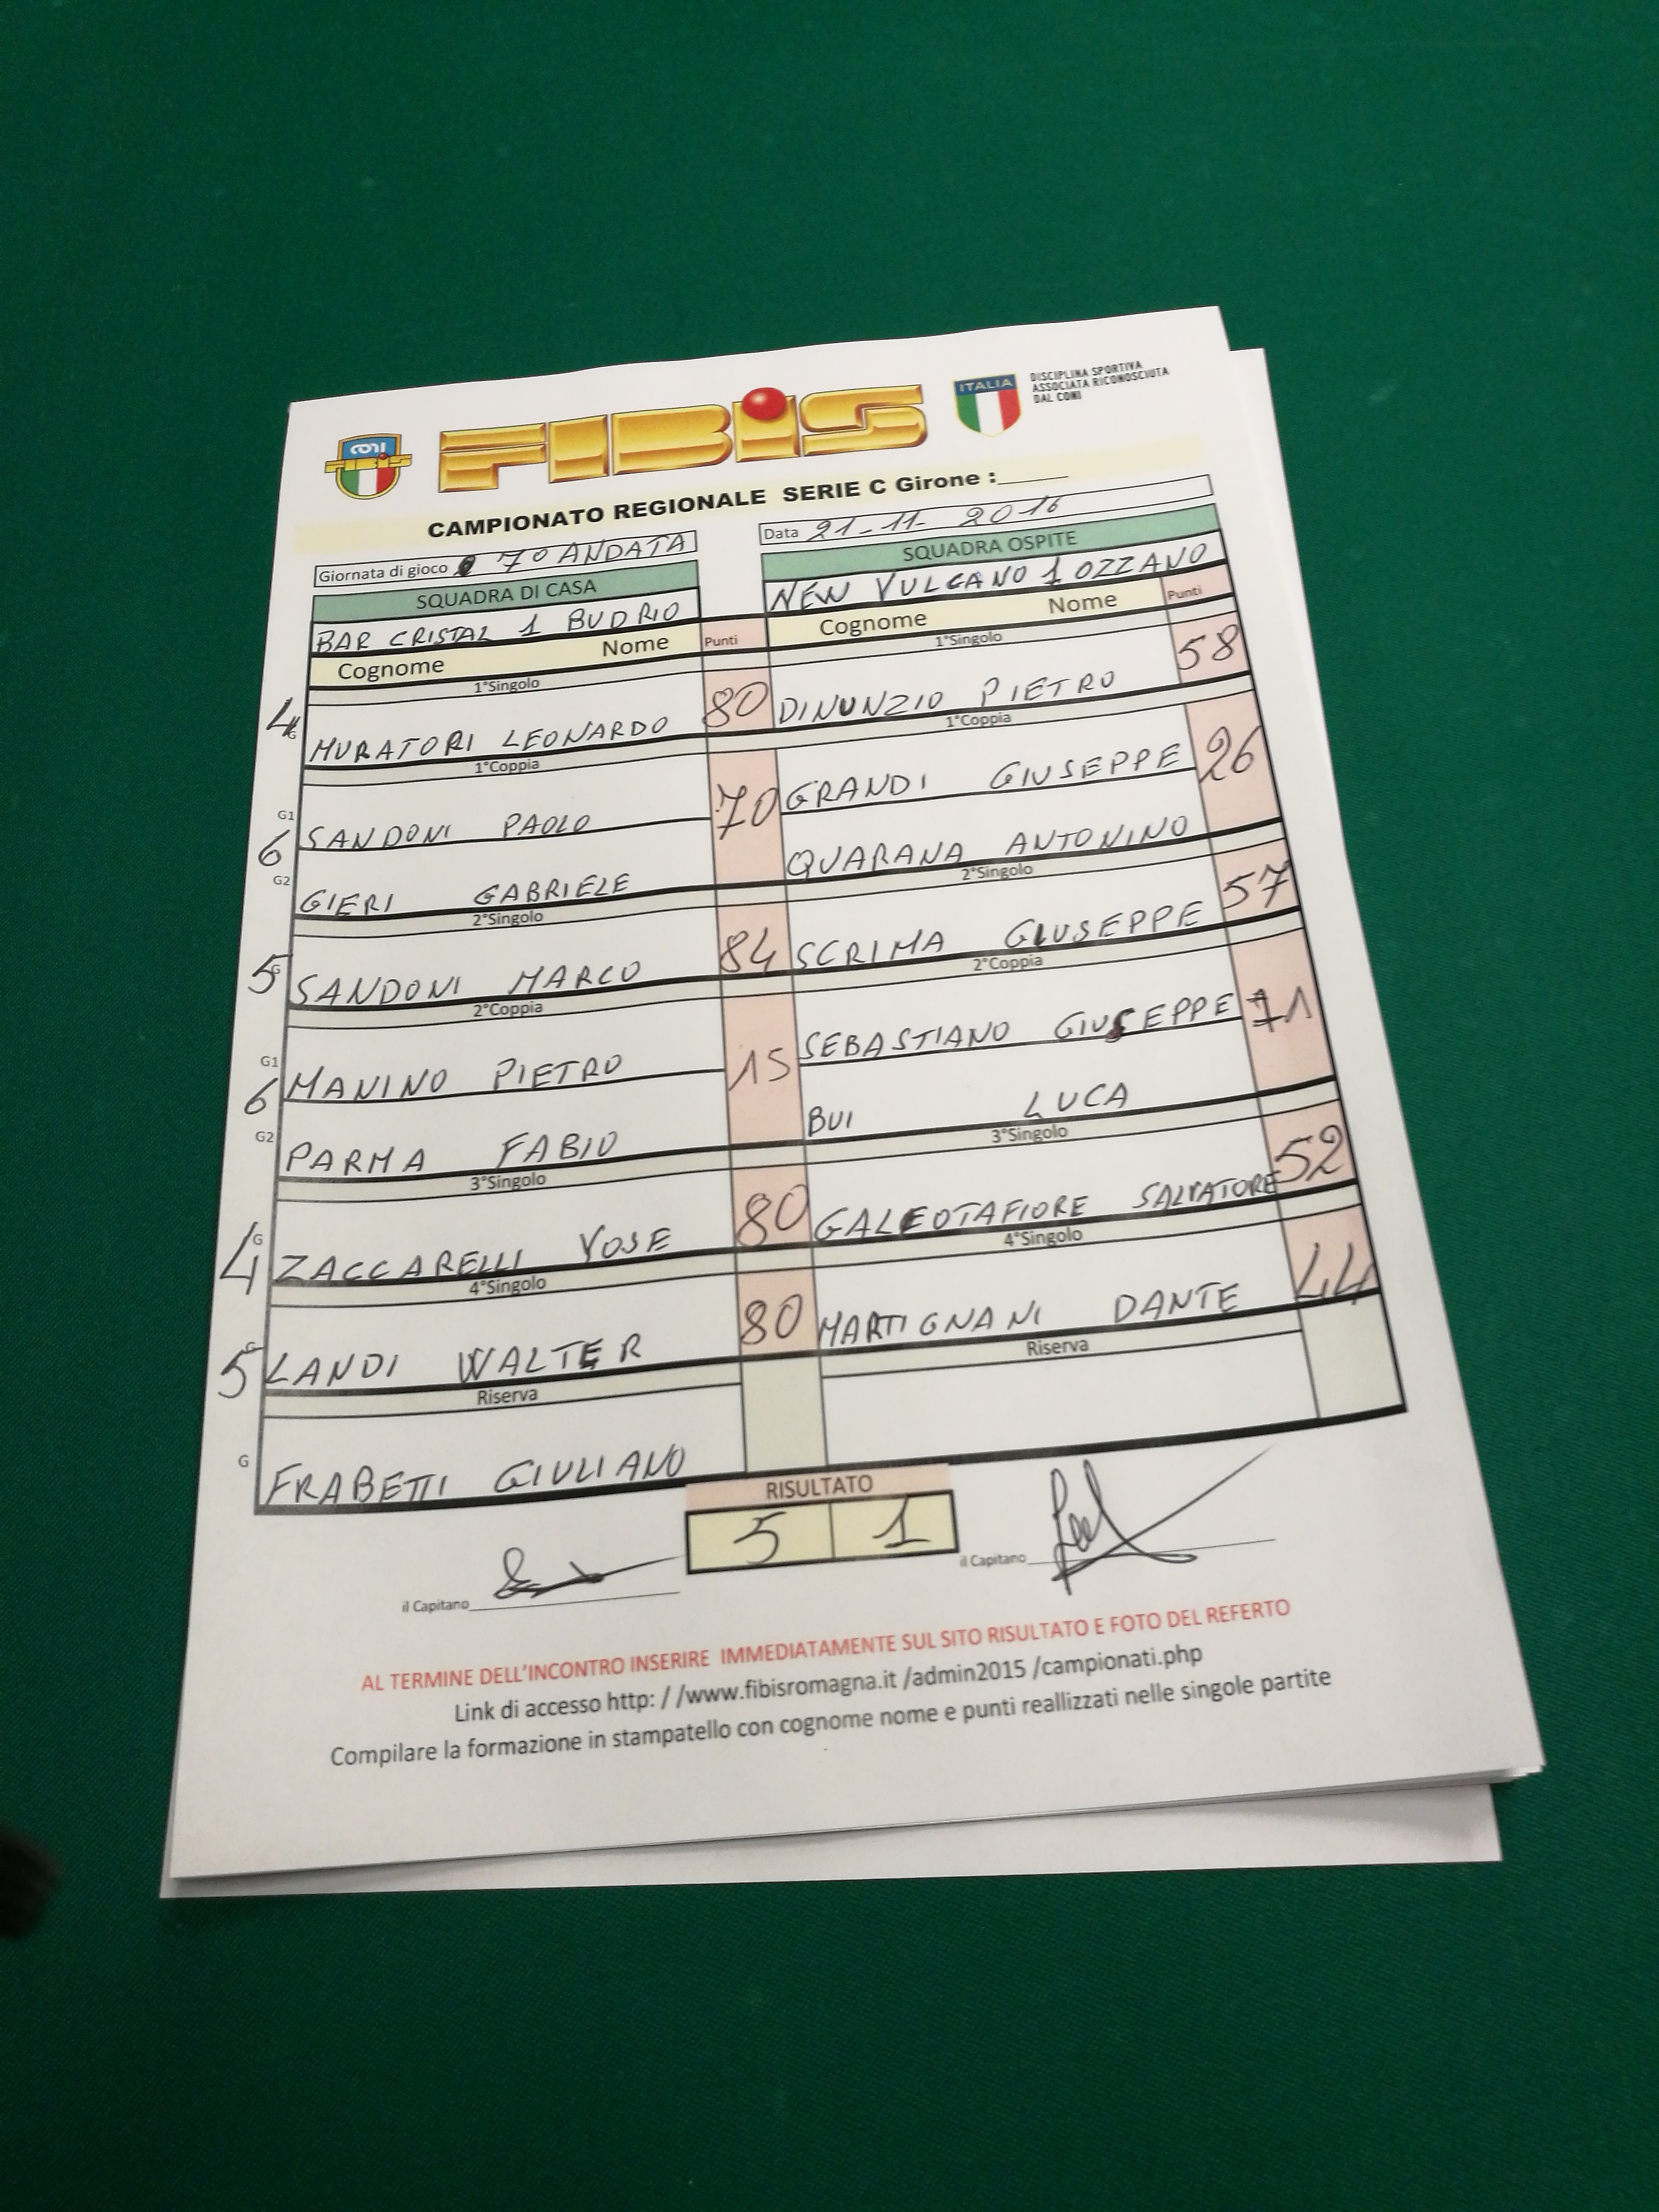 CONI
FIBiS
ITALIA
DISCIPLINA SPORTIVA
ASSOCIATA RICONOSCIUTA
DAL CONI
CAMPIONATO REGIONALE SERIE C Girone :______
Giornata di gioco 7° ANDATA
Data 21-11-2016
SQUADRA DI CASA
SQUADRA OSPITE
BAR CRISTAL 1 BUDRIO
NEW VULCANO 1 OZZANO
Cognome Nome Punti
Cognome Nome Punti
1°Singolo
1°Singolo
4 G MURATORI LEONARDO 80
DINUNZIO PIETRO 58
1°Coppia
1°Coppia
G1 SANDONI PAOLO
GRANDI GIUSEPPE
6 70
26
G2 GIERI GABRIELE
QUARANA ANTONINO
2°Singolo
2°Singolo
5 G SANDONI MARCO 84
SCRIMA GIUSEPPE 57
2°Coppia
2°Coppia
G1 MANINO PIETRO
SEBASTIANO GIUSEPPE
6 15
71
G2 PARMA FABIO
BUI LUCA
3°Singolo
3°Singolo
4 G ZACCARELLI YOSE 80
GALEOTAFIORE SALVATORE 52
4°Singolo
4°Singolo
5 G LANDI WALTER 80
MARTIGNANI DANTE 44
Riserva
Riserva
G FRABETTI GIULIANO
RISULTATO
5 1
il Capitano
il Capitano
AL TERMINE DELL'INCONTRO INSERIRE IMMEDIATAMENTE SUL SITO RISULTATO E FOTO DEL REFERTO
Link di accesso http: / /www.fibisromagna.it /admin2015 /campionati.php
Compilare la formazione in stampatello con cognome nome e punti reallizzati nelle singole partite